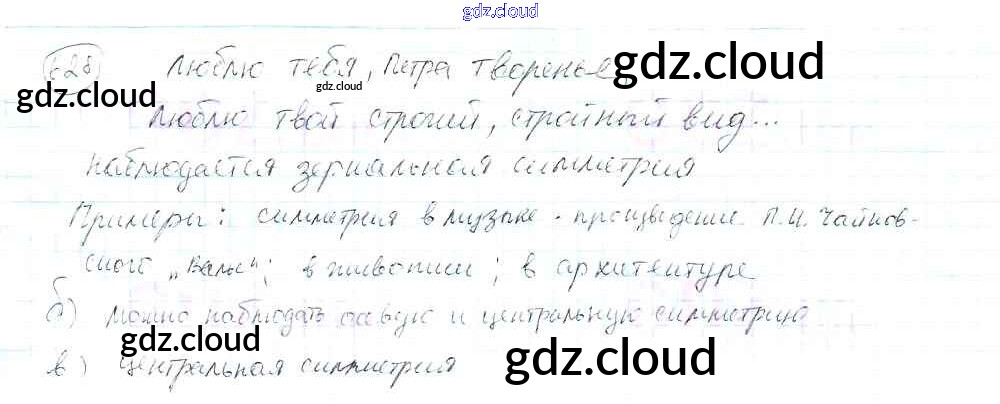 gdz.cloud
628 Люблю тебя, Петра творенье,
gdz.cloud
gdz.cloud
gdz.cloud
Люблю твой строгий, стройный вид...
наблюдается зеркальная симметрия
Примеры: симметрия в музыке - произведение П.И. Чайков-
ского „Вальс“; в живописи; в архитектуре
б) можно наблюдать осевую и центральную симметрию
gdz.cloud
gdz.cloud
в) Центральная симметрия